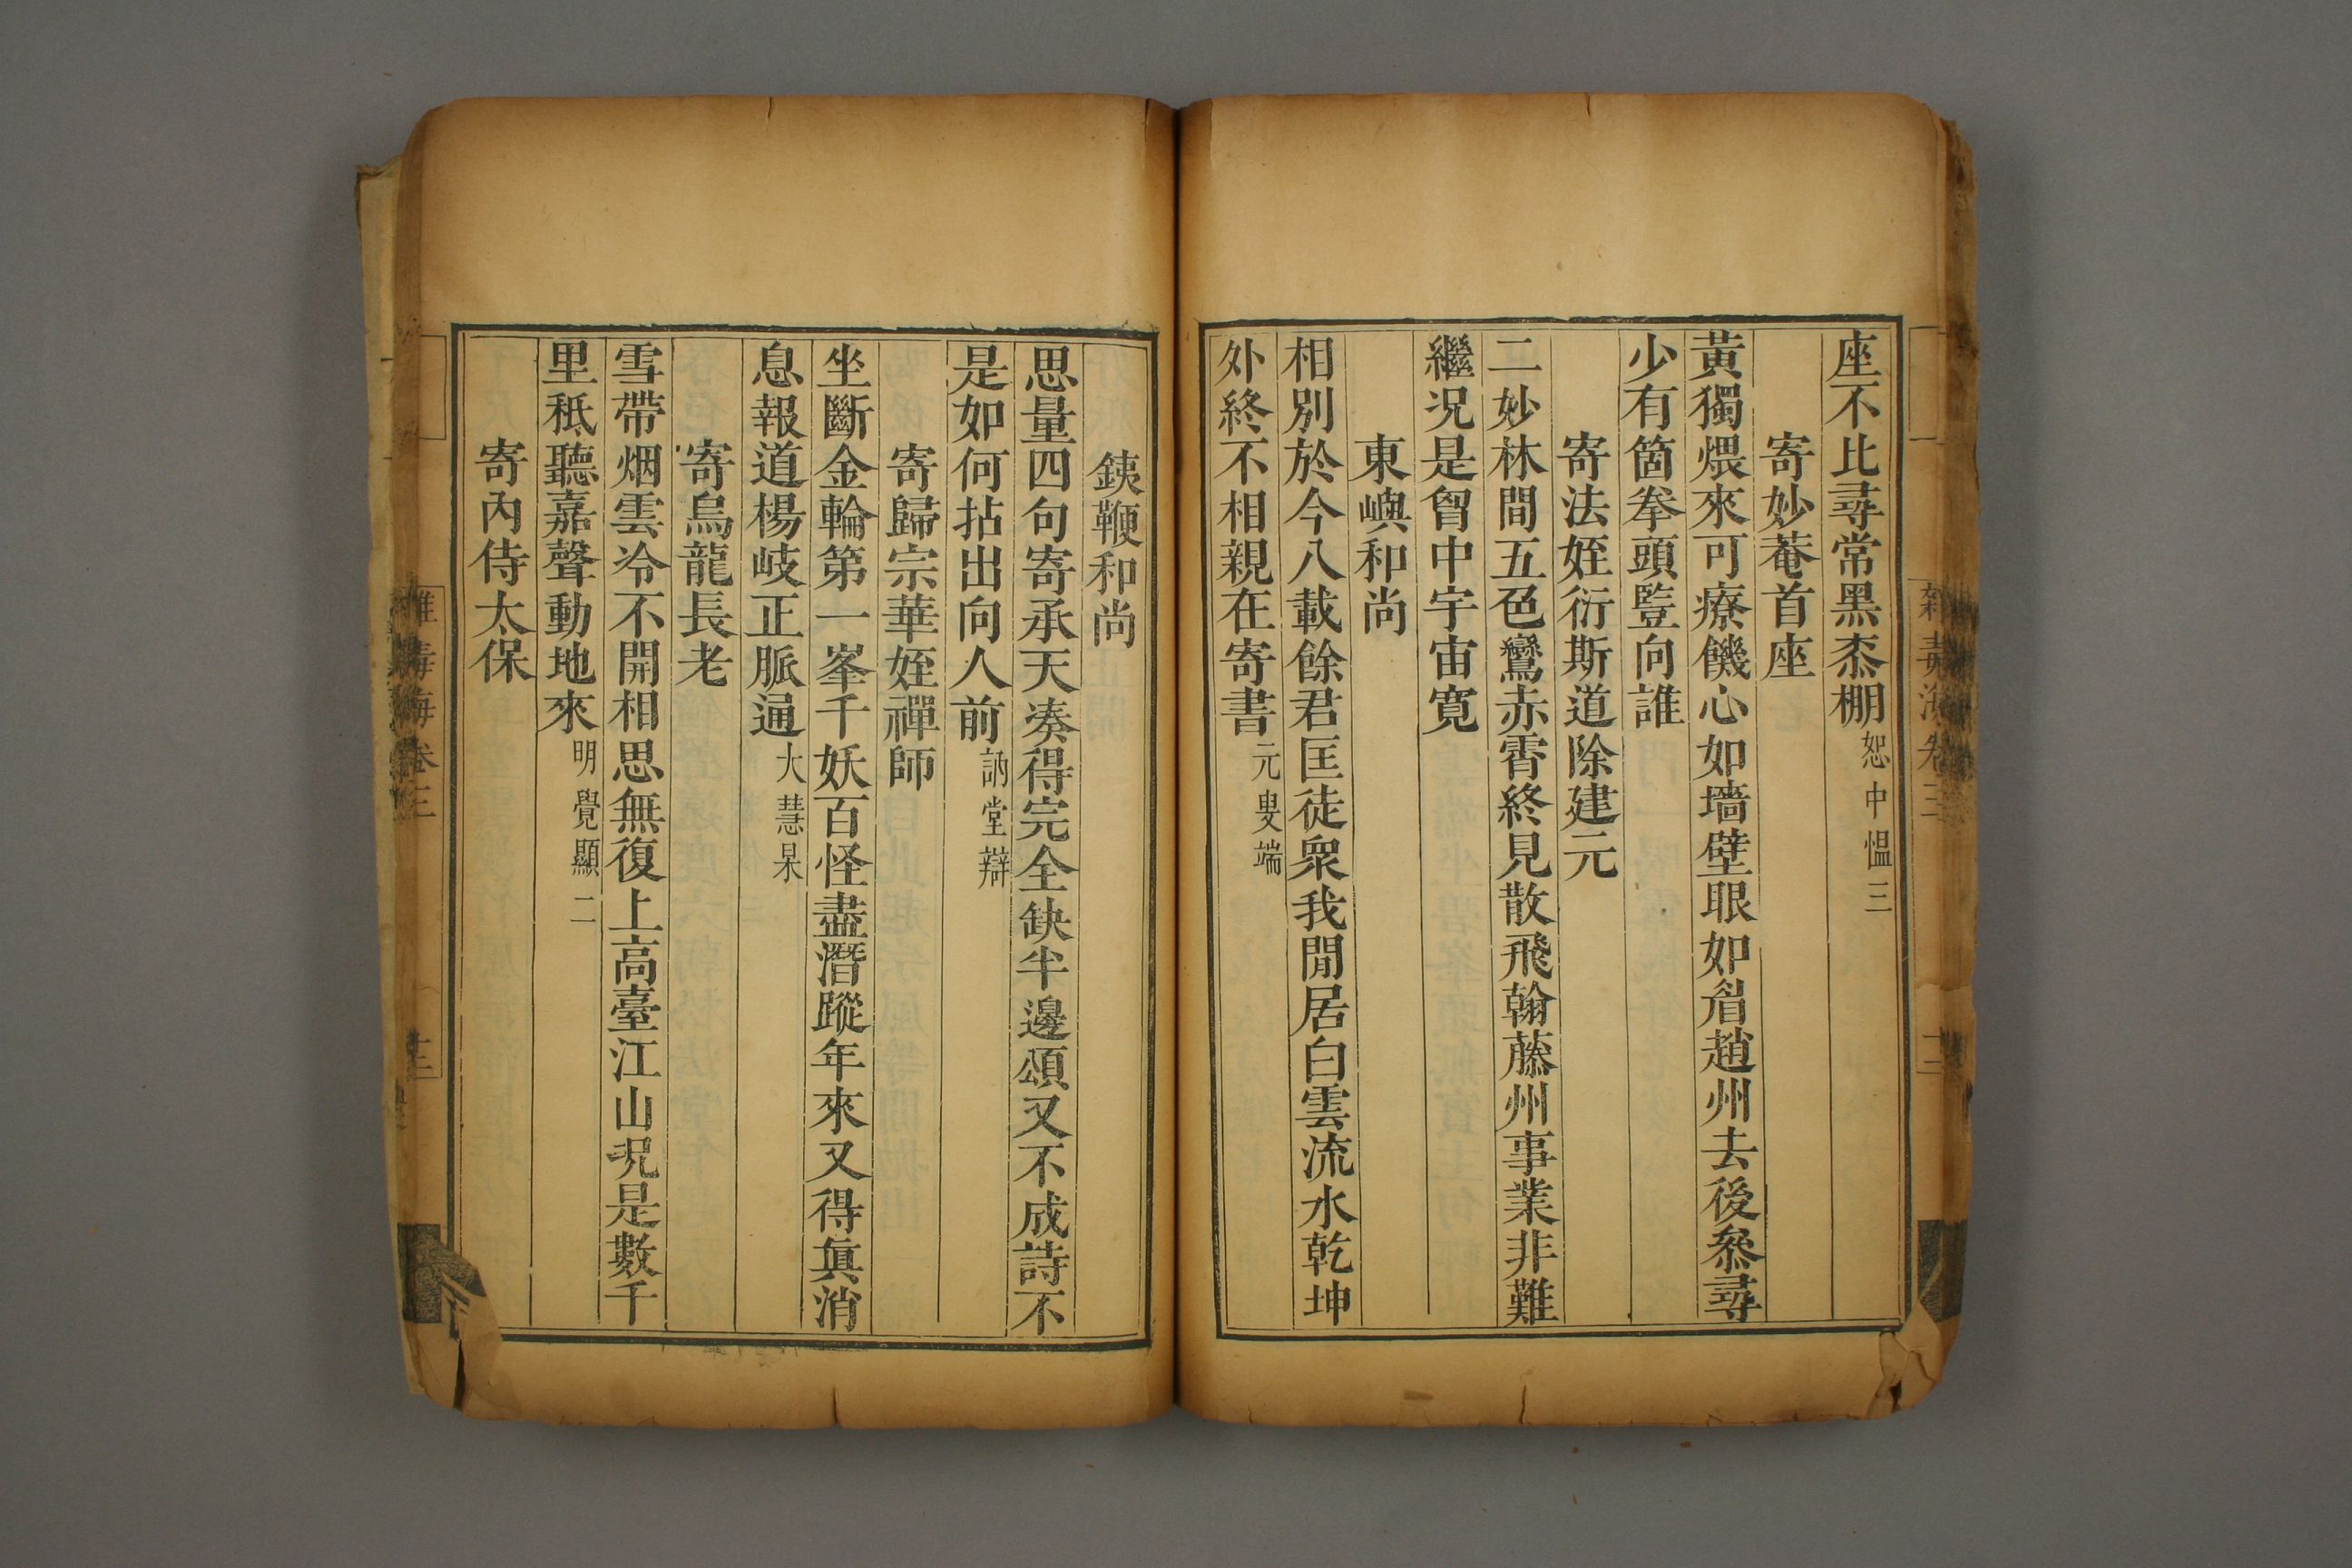 座不比尋常黑柰棚恕中愠三
寄妙菴首座
黃獨煨來可療饑心如墻壁眼如眉趙州去後叅尋
少有箇拳頭豎向誰
寄法姪衍斯道除建元
二妙林間五色鸞赤霄終見散飛翰藤州事業非難
繼况是胷中宇宙寛
東嶼和尚
相別於今八載餘君匡徒衆我閒居白雲流水乾坤
外終不相親在寄書元叟端
銕鞭和尚
思量四句寄承天凑得完全缺半邊頌又不成詩不
是如何拈出向人前訥堂辯
寄歸宗華姪禪師
坐斷金輪第一峯千妖百怪盡潛蹤年來又得眞消
息報道楊岐正脈通大慧杲
寄烏龍長老
雪帶烟雲冷不開相思無復上高臺江山况是數千
里秪聽嘉聲動地來明覺顯二
寄內侍太保